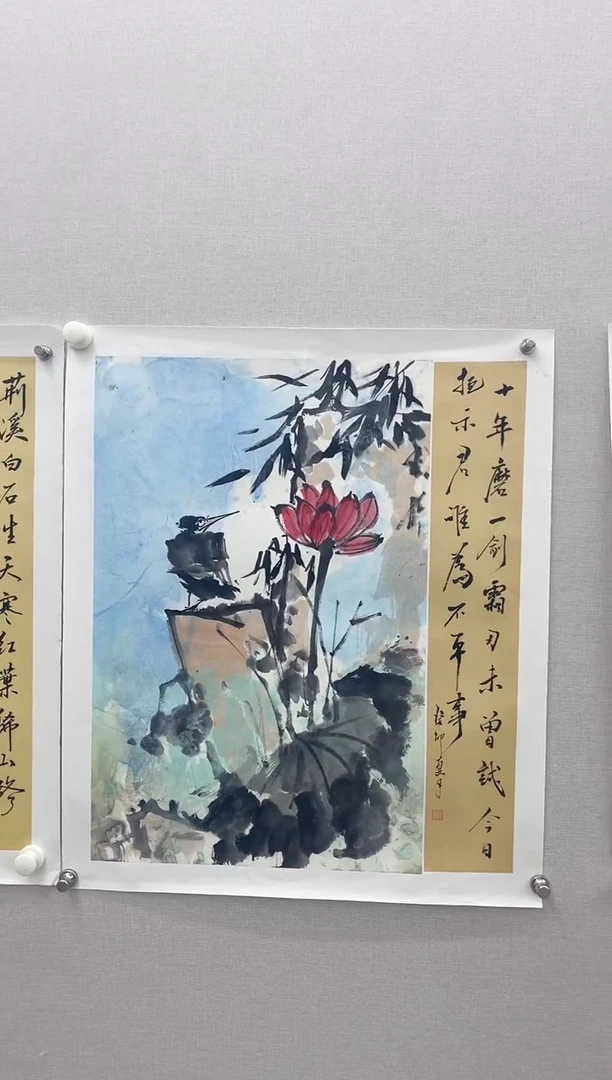 十年磨一剑霜刃未曾試今日
把示君唯為不平事
癸卯夏月
荊溪白石生天寒红葉稀山路